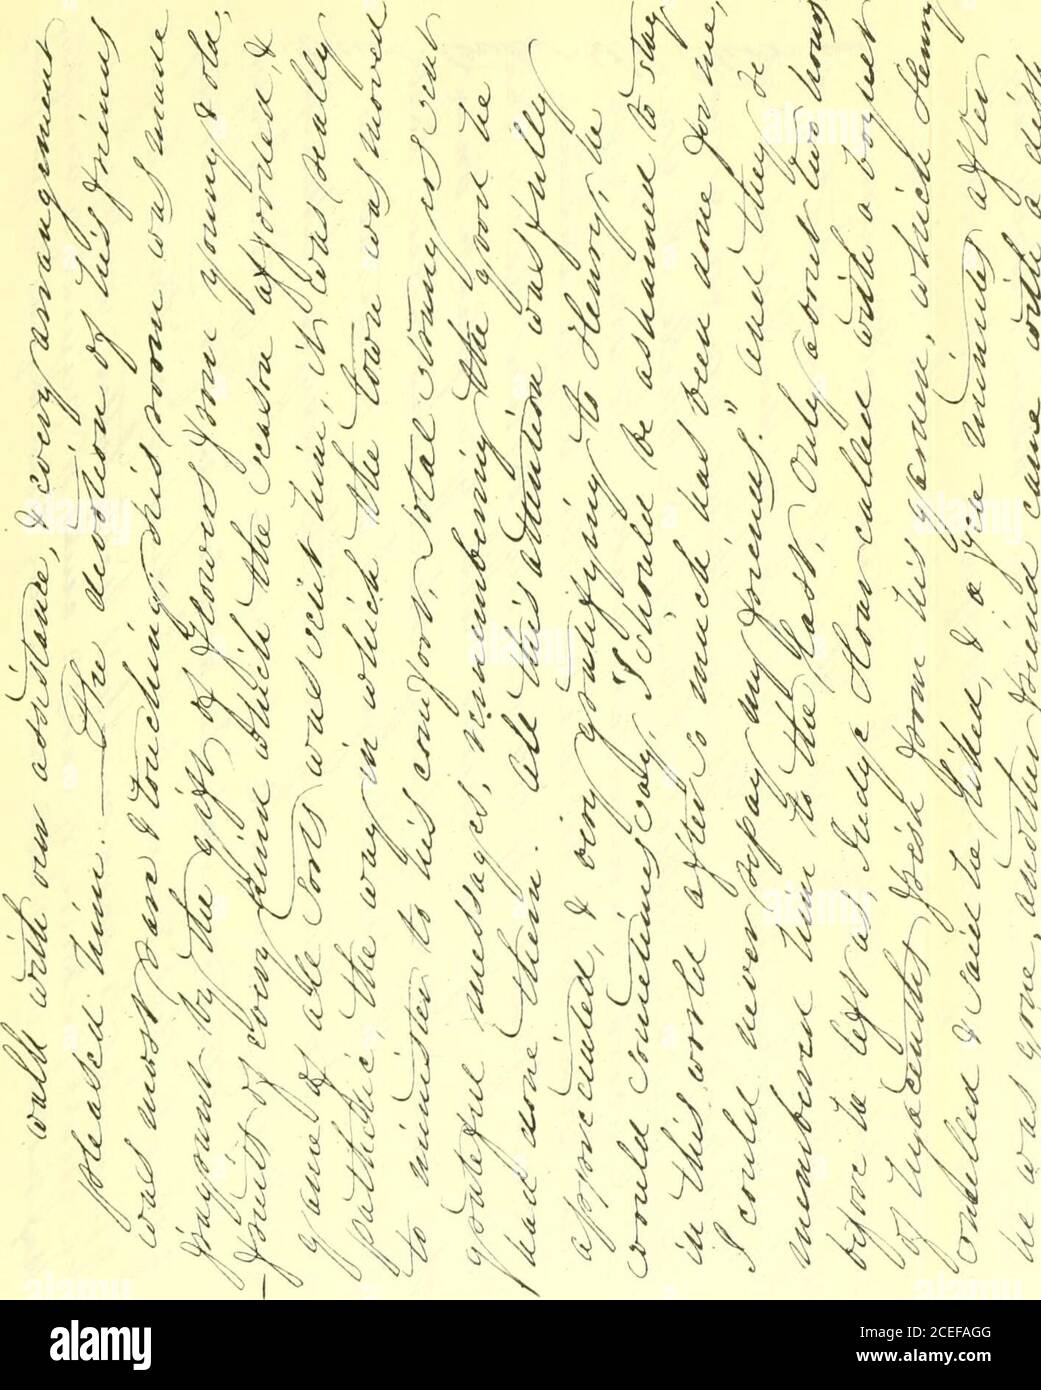 walk with our assistance, & every arrangement
pleased him. — The devotion of his friends
was most rare & touching; his room was made
fragrant by the gift of flowers from young & old;
fruit of every kind which the season afforded, &
game of all sorts was sent him; it was really
pathetic, the way in which the town was moved
to minister to his comfort, total strangers sent
grateful messages, remembering the good he
had done them. All this attention was fully
appreciated, & very gratifying to Henry; he
would sometimes say, "I should be ashamed to stay
in this world after so much has been done for me,
I could never repay my friends." and they re
membered him to the last. Only about two hours
before he left us, Judge Hoar called with a boquet
of hyacinths fresh from his garden, which Henry
smelled & said he liked, & a few minutes after
he was gone, another friend came with a dish
alamy
Image ID: 2CEFAGG
www.alamy.com